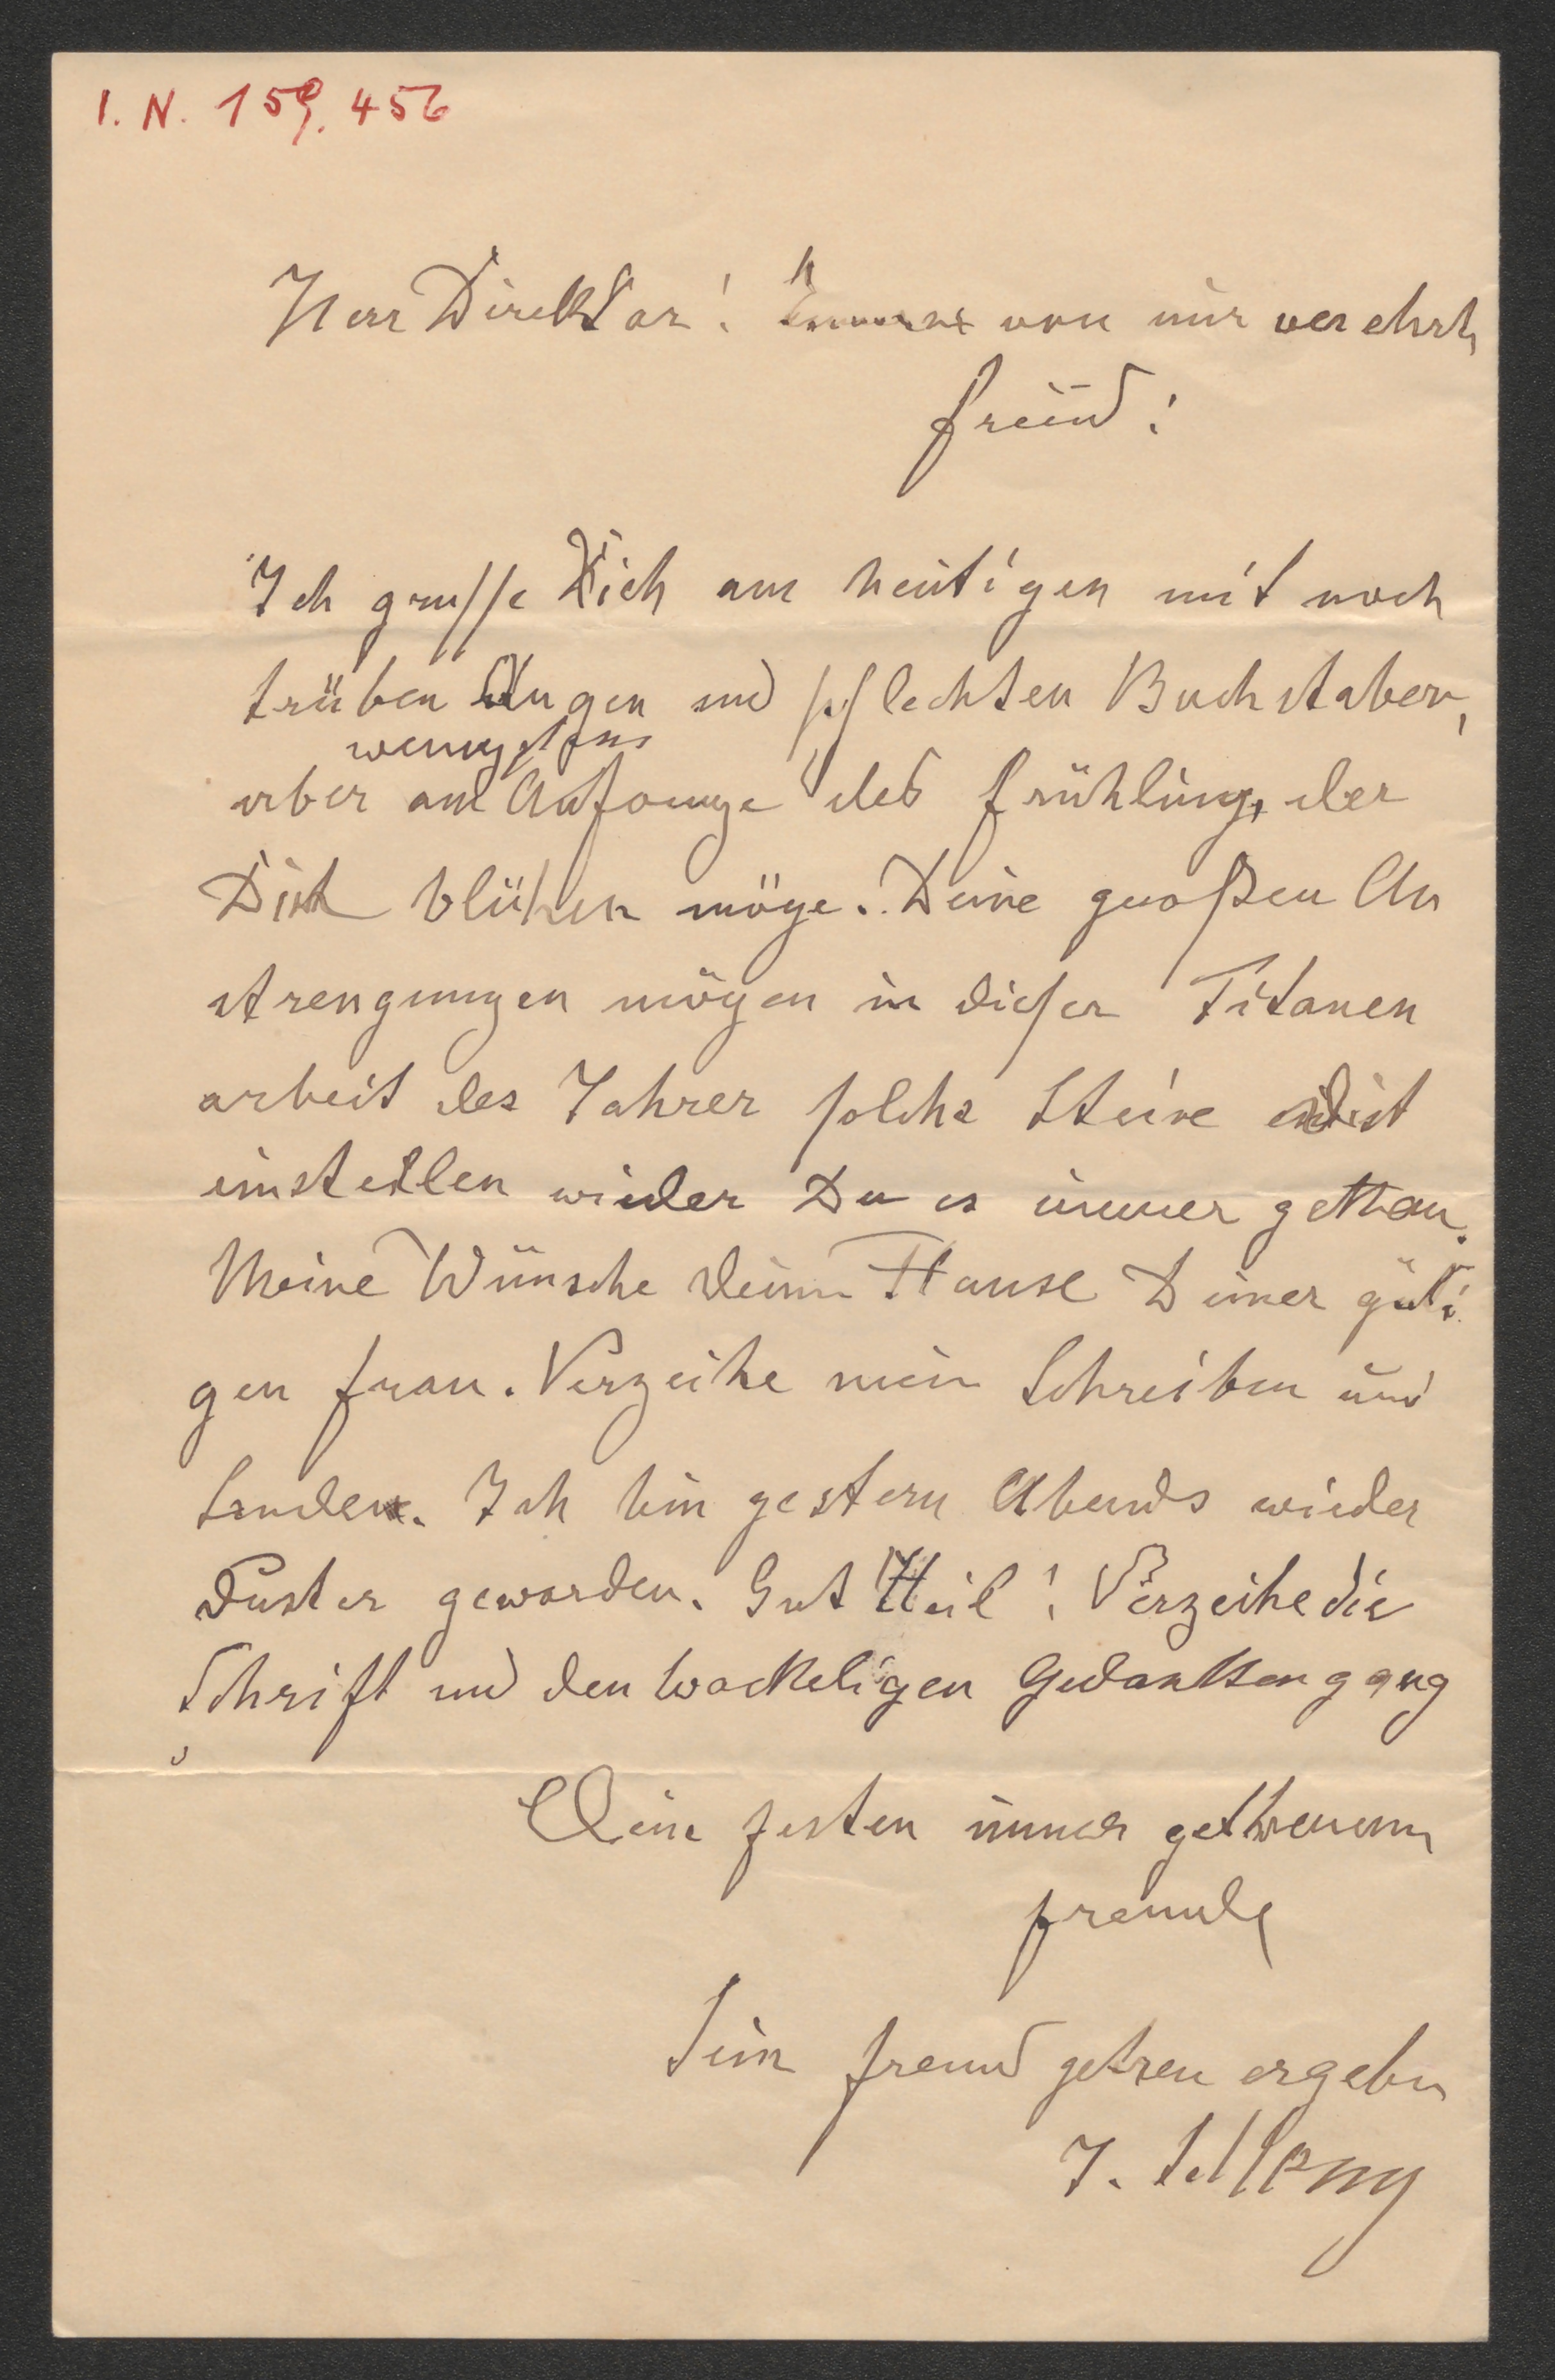 I. N. 159.456
Herr Direktor! von mir verehrt
Freund!
Ich grusse Dich am heutigen mit noch
trüben Augen und schlechten Buchstaben,
wenigstens
aber am Anfange des Frühling, der
Dich blühen möge. Deine großen An
strengungen mögen in dieser Titanen
arbeit des Jahrer solche Steine
einstellen wieder Du es immer gethan.
Meine Wünsche Deinn Hause Deiner güti
gen Frau. Verzeihe mein Schreiben und
Senden. Ich bin gestern Abends wieder
Duster geworden. Gut Heil! Verzeihe die
Schrift und den wackeligen Gedankengang
festen immer
Freunde
Freund getreu ergebn
J.